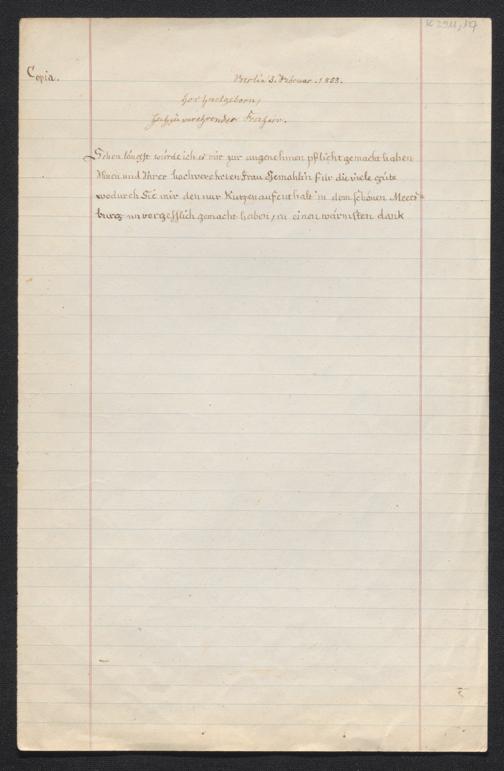 K 2911,17
Copia.
Berlin 3. Februar. 1853.
Hochwolgeborn,
Hochzuverehrender Freiherr.
Schon längst würde ich es mir zur angenehmen pflicht gemacht haben
Ihnen und Ihrer hochverehrten Frau Gemahlin für die viele güte
wodurch Sie mir den nur Kurzen aufenthalt in dem schönen Meers-
burg unvergesslich gemacht haben, einen wärmsten dank